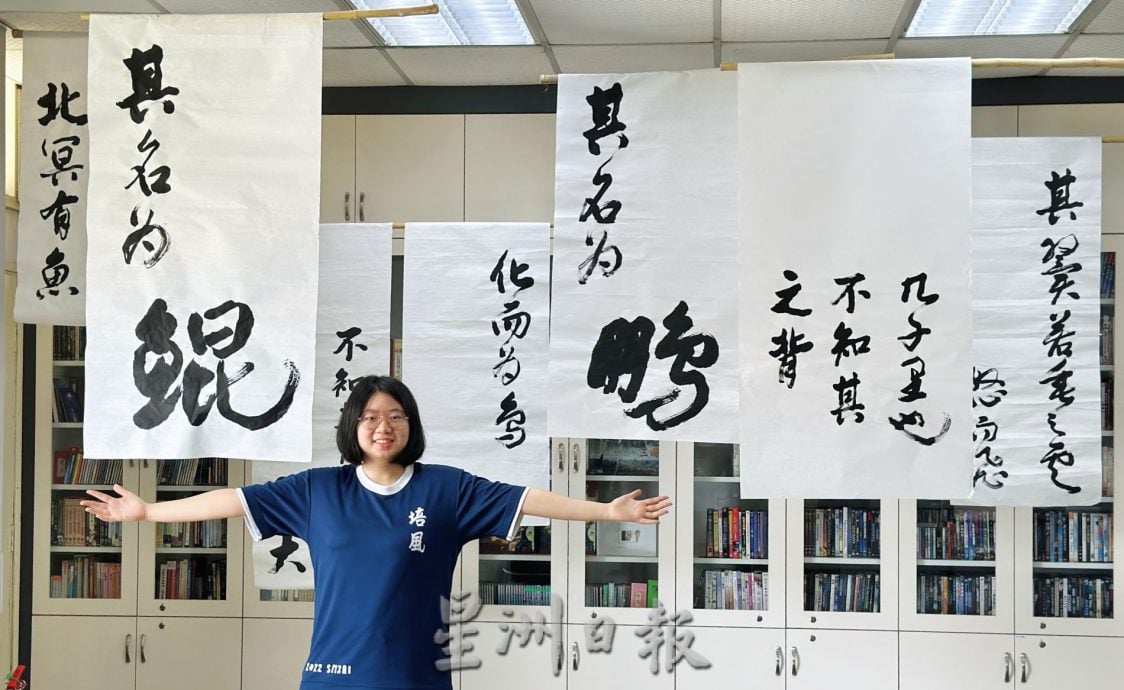 北冥有魚
其名为
鲲
不知
大
化而为鸟
其名为
鹏
几千里也
不知其
之背
其翼若垂之雲
怒而飞
培風
星洲日報